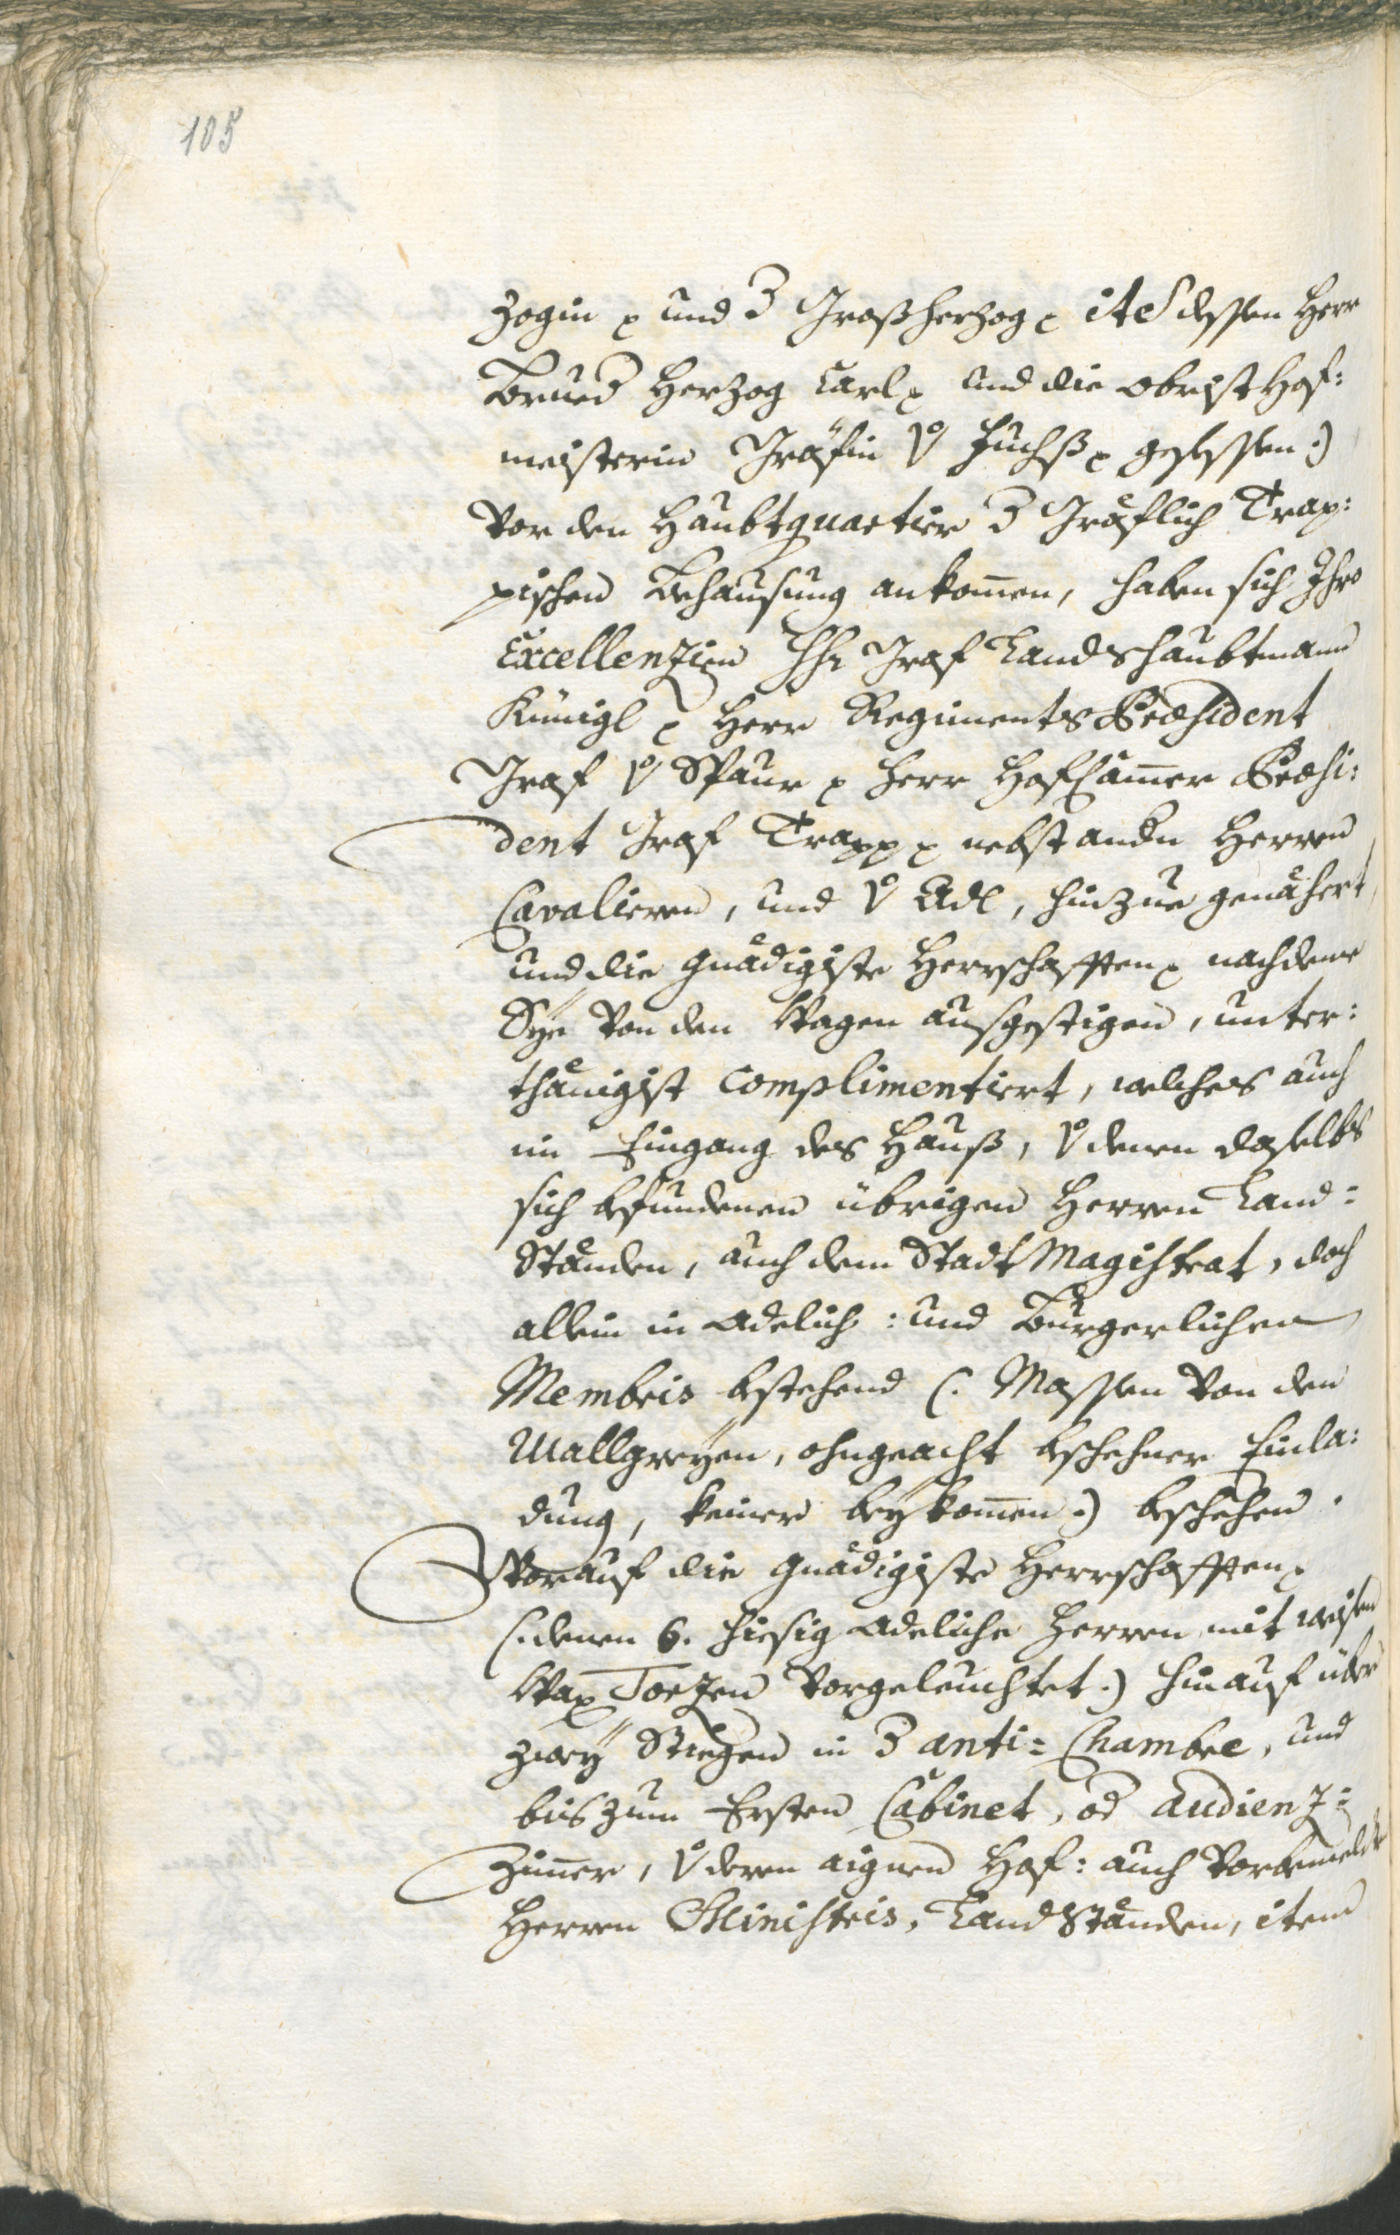 105
Zogin p und der Großherzog p ite dessen Herr
Brueder Herzog Carl p und die obrist Hof:
meisterin Gräfin v Fuchß p gesessen :)
Vor den Haubtquartier der Gräflich Trap:
pischen Behausung ankom̄en, haben sich Ihro
Excellenzien HH Graf Landshaubtmann
Künigl p Herr Regiments Præsident
Graf v Spaur p Herr Hof Cam̄er Præsi:
dent Graf Trapp p nebst andern Herren
Cavalieren, und v Adl, hinzue genähert,
und die gnädigiste Herrschafften p nachdeme
Sye von den Wagen ausgestigen, unter:
thänigist Complimentiert, welches auch
im Eingang des Hauß, v denen daselbs
sich befundenen übrigen Herren Land=
Ständen, auch dem Stadt Magistrat, doch
allein in Adelich: und Burgerlichen
Membris bestehend (: Massen von den
Wallgreÿen, ohngeacht beschehner Einla:
dung, keiner beÿkom̄en :) beschehen.
Worauf die gnädigiste Herrschafften p
(: denen 6. hiesig Adeliche Herren mit weisen
Wax Torzen vorgeleuchtet :) hinauf über
zweÿ Stiegen in der anti= Chambre, und
bis zum Ersten Cabinet, od Audienz=
Zim̄er, v deren aignen Hof: auch vorbemeldte
Herren Ministris, Land Ständen, item